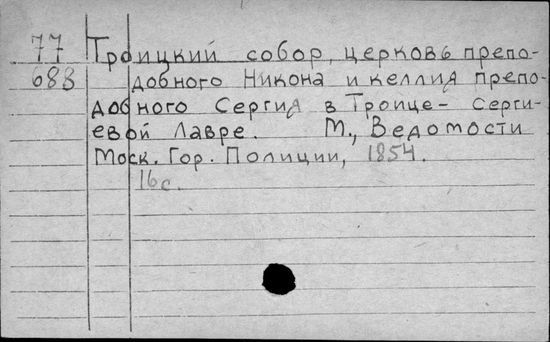 77 Троицкий собор, церковь препо-
683 добного Никона и келлия препо-
добного Сергия в Троице-Серги-
евой Лавре. М., Ведомости
Моск. Гор. Полиции, 1854.
16 с.